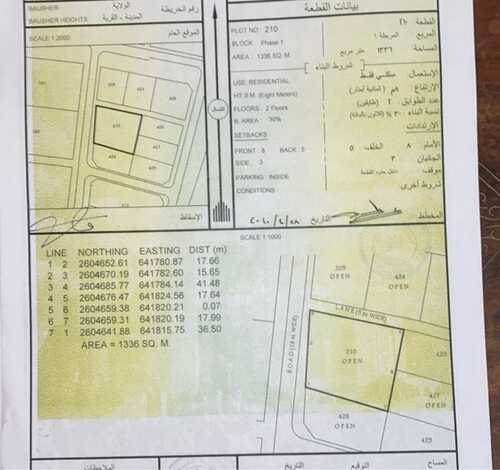 BAUSHER
BAUSHER HEIGHTS
SCALE 1:2000
الولاية
المدينة - القرية
رقم الخريطة
الموقع العام
210
الإسقاط
الشمال
بيانات القطعة
PLOT NO: 210
BLOCK: Phase 1
AREA: 1336 SQ. M.
القطعة ٢١٠
المربع المرحلة ١
المساحة ١٣٣٦ متر مربع
شروط البناء
USE: RESIDENTIAL
HT: 9 M. (Eight Meters)
FLOORS: 2 Floors
B. AREA: 30%
SETBACKS
FRONT 8 BACK 5
SIDE 3
PARKING INSIDE
CONDITIONS
الإستعمال سكني فقط
الإرتفاع
عدد الطوابق ٢ (طابقين)
نسبة البناء ٣٠ %
الإرتدادات
الأمام ٨ الخلف ٥
الجانبان ٣
موقف داخل حدود القطعة
شروط أخرى
التاريخ
المخطط
SCALE 1:1000
LINE NORTHING EASTING DIST (m)
1 2 2604652.61 641780.87 17.66
2 3 2604670.19 641782.60 15.65
3 4 2604685.77 641784.14 41.48
4 5 2604676.47 641824.56 17.64
5 6 2604659.38 641820.21 0.07
6 7 2604659.31 641820.19 17.99
7 1 2604641.88 641815.75 36.50
AREA = 1336 SQ. M.
OPEN
424
OPEN
LANE (8m WIDE)
ROAD (18m WIDE)
210
OPEN
425
427
OPEN
428
OPEN
الملاحظات
التاريخ
التوقيع
المساح